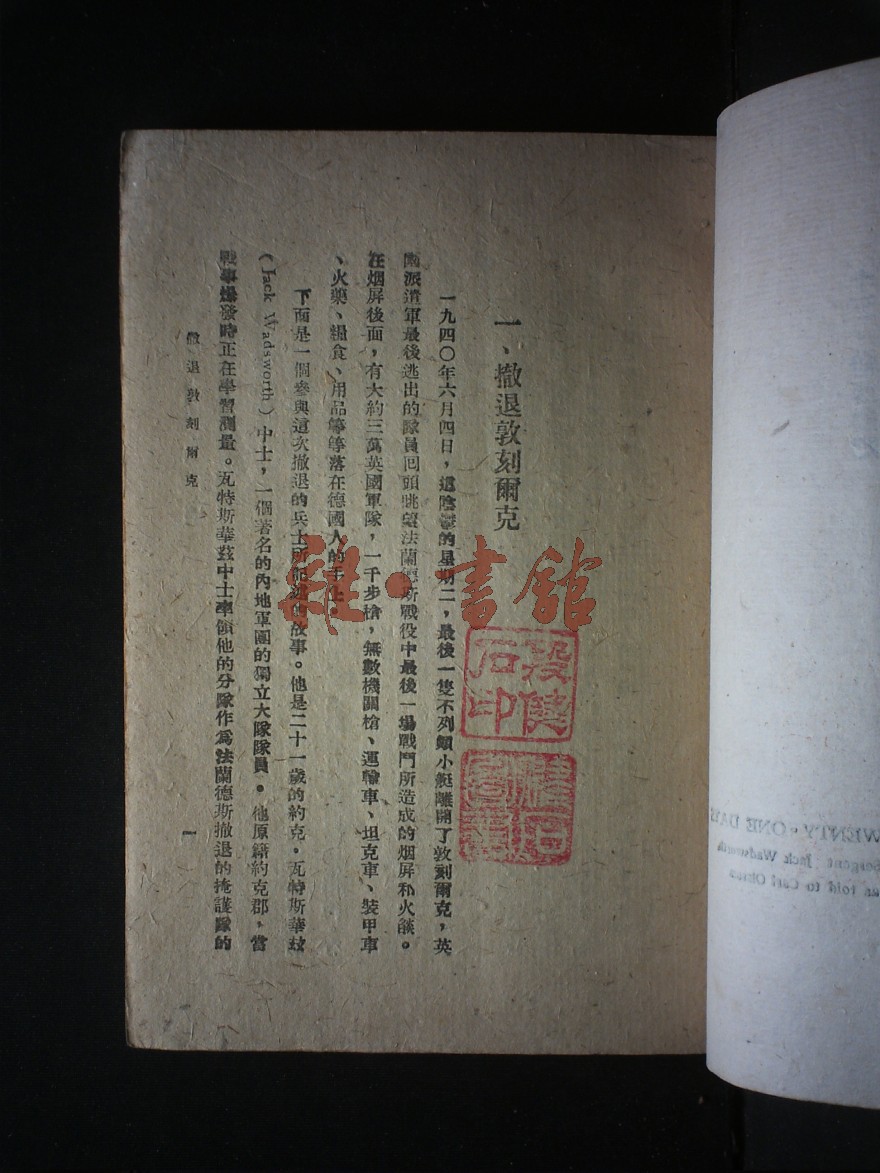 一、撤退敦刻爾克
一九四〇年六月四日，這陰鬱的星期二，最後一隻不列顛小艇離開了敦刻爾克，英
國派遣軍最後逃出的隊員回頭眺望法蘭德斯戰役中最後一場戰鬥所造成的烟屏和火燄。
在烟屏後面，有大約三萬英國軍隊，一千步槍，無數機關槍、運輸車、坦克車、裝甲車
、火藥、糧食、用品等等落在德國人的手上。
下面是一個參與這次撤退的兵士所 的故事。他是二十一歲的約克。瓦特斯華玆
（Jack Wadsworth）中士，一個著名的內地軍團的獨立大隊隊員。他原籍約克郡，當
戰事爆發時正在學習測量。瓦特斯華玆中士率領他的分隊作爲法蘭德斯撤退的掩護隊的
撤退敦刻爾克
一
雜·書館
段健
石印
TWENTY-ONE DAYS
Sergent Jack Wadsworth
told to Carl Olsson